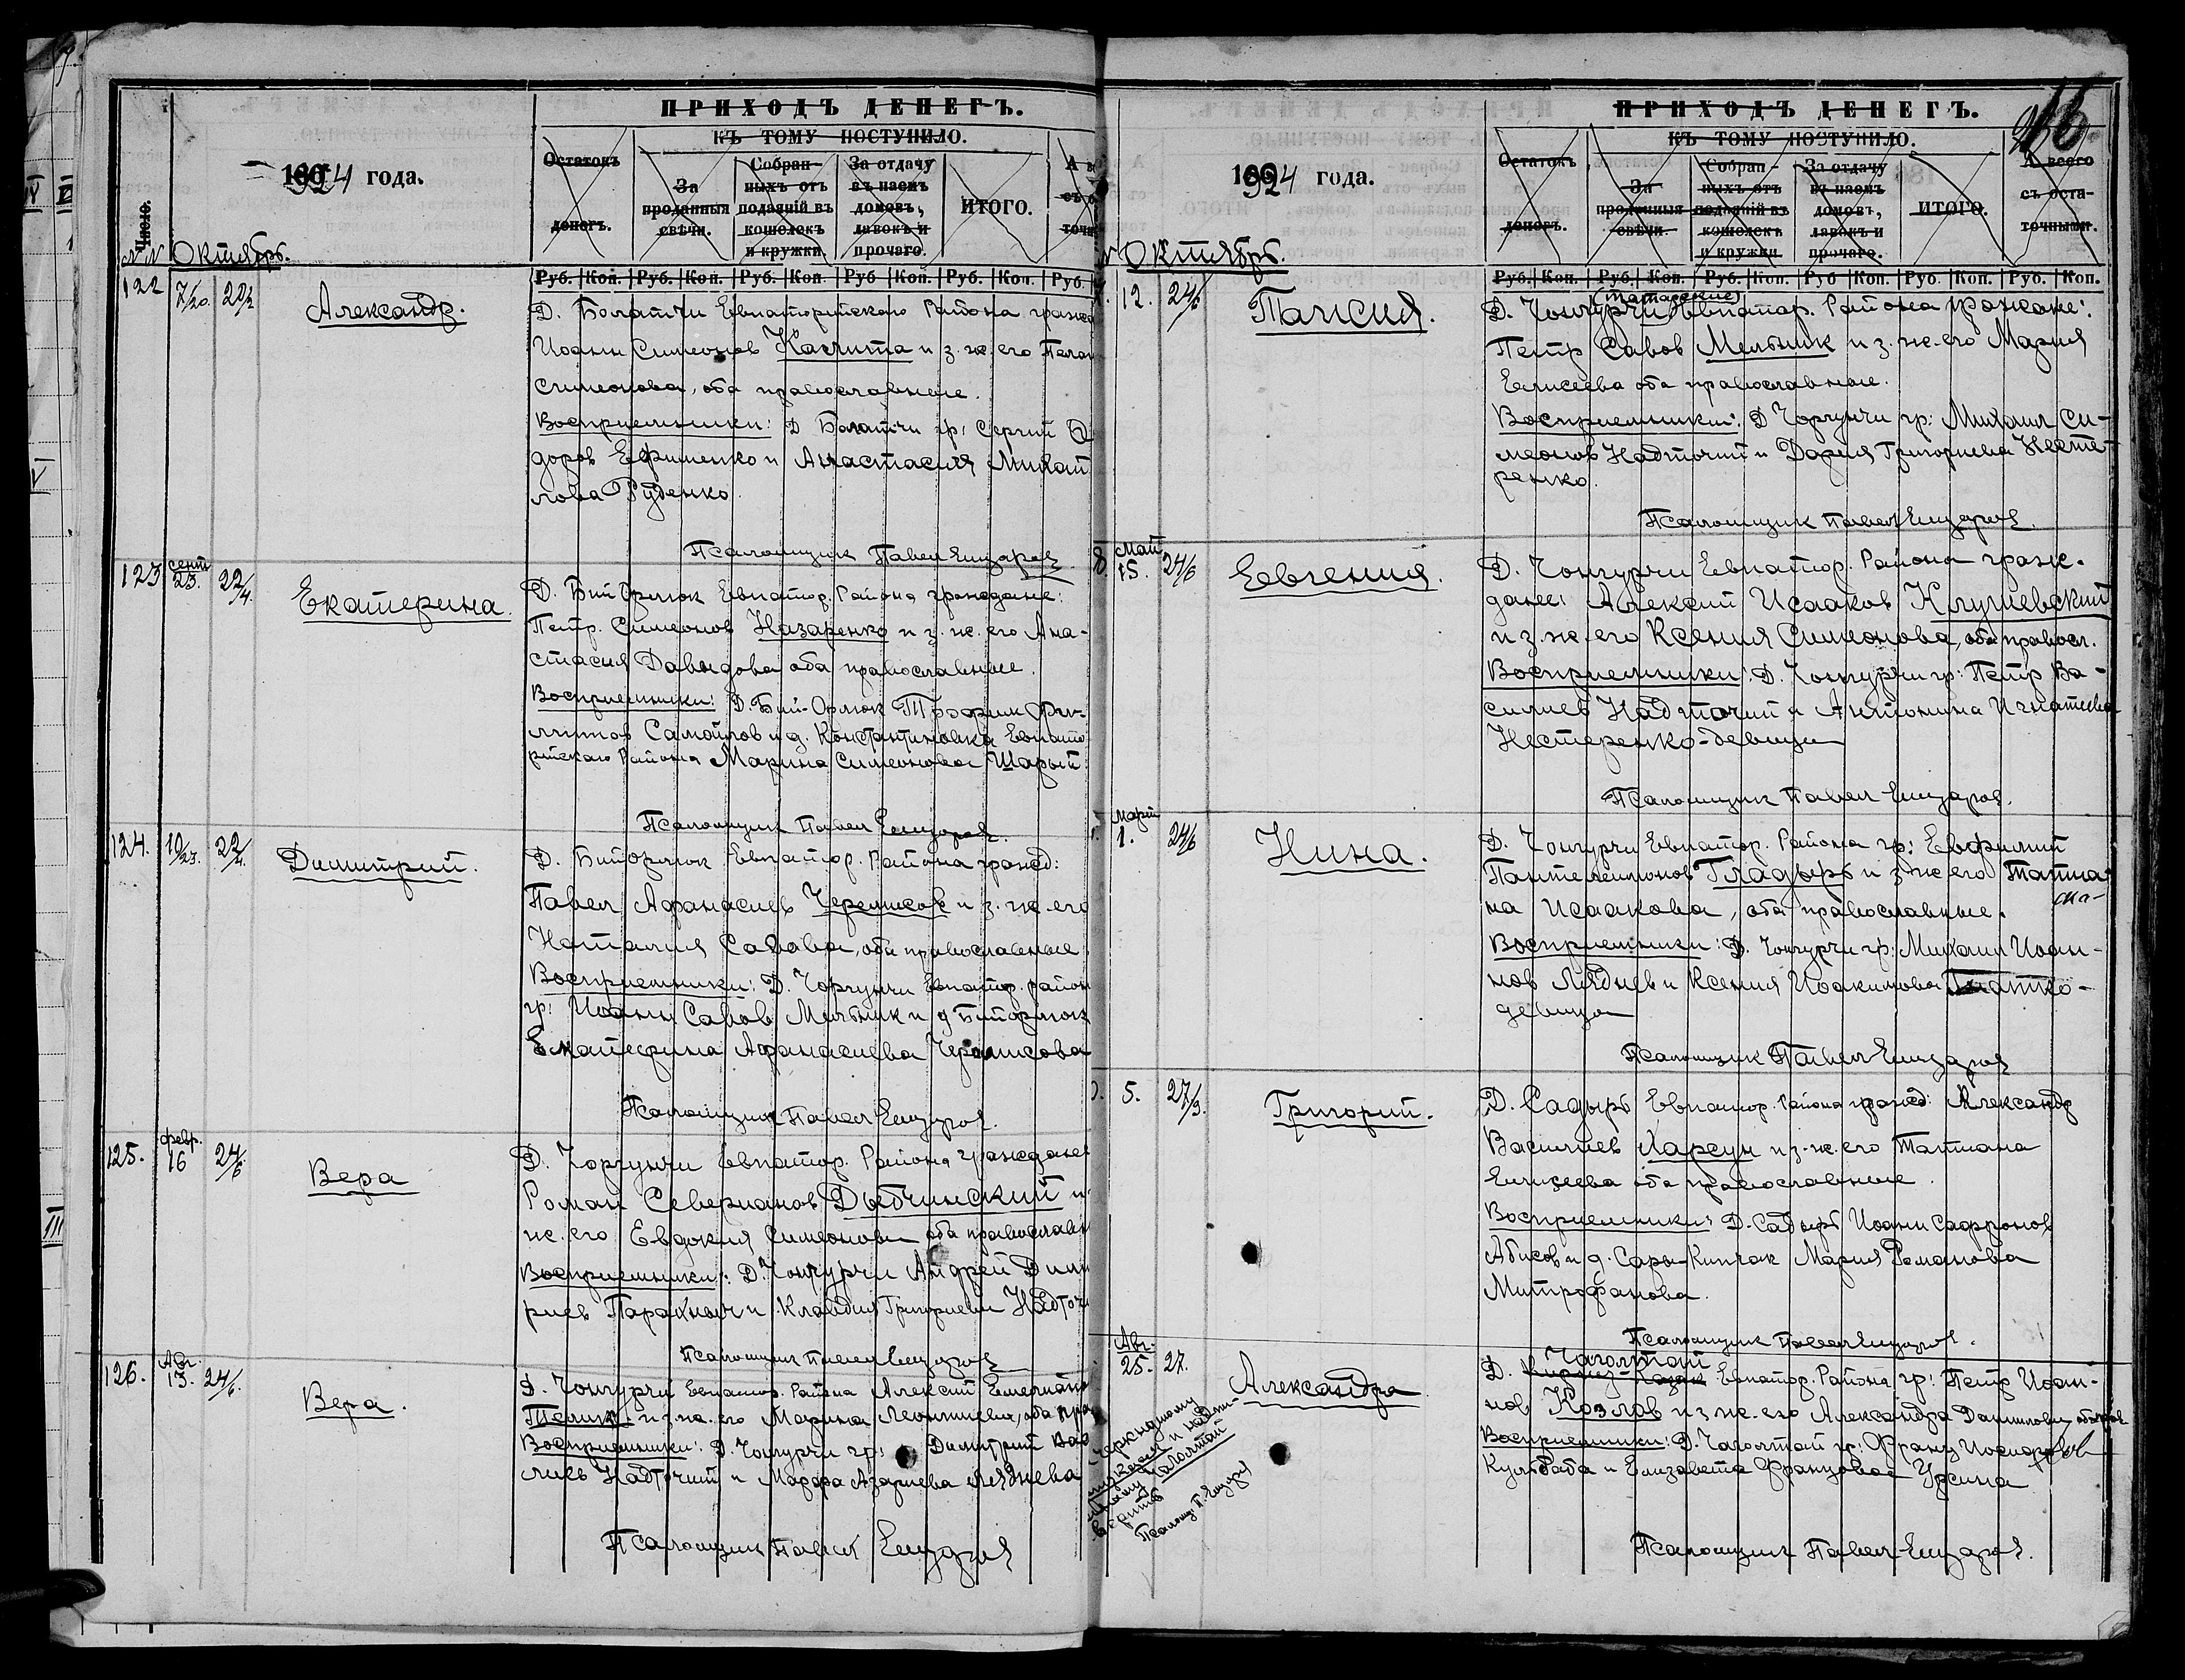 ПРИХОДЪ ДЕНЕГЪ.
КЪ ТОМУ ПОСТУПИЛО.
1924 года.
Число.
Остатокъ денегъ.
За проданныя свѣчи.
Собранныхъ отъ подаяній въ кошелекъ и кружки
За отдачу въ наемъ домовъ, лавокъ и прочаго.
ИТОГО.
№№ Октябрь.
Руб. Коп. Руб. Коп. Руб. Коп. Руб Коп. Руб. Коп. Руб.
122 7/20. 20/2
Александр.
Д. Болатчи Евпаторийскаго Района гражд
Иоанн Симеонов и з. ж. его Пелаг
Симеонова, оба православные.
Восприемники: Д Болатчи гр: Сергий
доров Ефименко и Анастасия Михай
лова Руденко.
Псаломщик Павел
123 сент 23. 22/4.
Екатерина.
Д. Бий Орлюк Евпатор. Района граждане:
Петр. Симеонов Назаренко и з. ж. его Ана-
стасия Давыдова оба православные.
Восприемники: Д. Бий-Орлюк Трофим Фи-
липов Самойлов и д. Константиновка Евпато
рийскаго Района Марина Симеонова Шарый
Псаломщик Павел
124. 10/23. 22/4.
Димитрий.
Д. Бийорлюк Евпатор. Района гражд:
Павел Афанасиев и з. ж. его
Наталия Савова, оба православные
Восприемники: Д. Чоргунчи Евпатор. район
гр: Иоанн Савов Мельник и д Бийорлюк
Екатерина Афанасиева
Псаломщик Павел
125. февр. 16 24/6
Вера
Д. Чоргунчи Евпатор. Района граждане
Роман Северианов Дыбчинский и
ж. его Евдокия Симеонова оба православн
Восприемники: Д. Чонгурчи Андрей Дими
риев и Клавдия Григориева Надточи
Псаломщик Павел
126. Авг. 13. 24/6.
Вера.
Д. Чонгурчи Евпатор. Района Алексий Емельяно
и з. ж. его Марина Леонтиева, оба пра
Восприемники: Д. Чонгурчи гр: Димитрий Вас
лиев Надточий и Марфа Азариева Ляднева
Псаломщик Павел
ПРИХОДЪ ДЕНЕГЪ.
КЪ ТОМУ ПОСТУПИЛО.
1924 года.
Остатокъ денегъ.
За проданныя свѣчи.
Собранныхъ отъ подаяній въ кошелекъ и кружки
За отдачу въ наемъ домовъ, лавокъ и прочаго.
ИТОГО.
А всего съ остаточными.
Октябрь.
Руб. Коп. Руб Коп. Руб. Коп. Руб Коп. Руб. Коп. Руб. Коп.
12. 24/6
Таисия.
(татарские)
Д. Чонгурчи Евпатор. Района граждане:
Петр Савов Мельник и з. ж. его Мария
Елисеева оба православные.
Восприемники: Д Чоргунчи гр: Михаил Си-
меонов Надточий и Дария Григориева Несте-
ренко.
Псаломщик Павел
Май 15. 24/6
Евгения.
Д. Чонгурчи Евпатор. Района граж-
дане: Алексий Исааков
и з. ж. его Ксения Симеонова, оба правосл.
Восприемники: Д. Чонгурчи гр: Петр Ва-
силиев Надточий и Антонина Игнатиева
Нестеренко-девица
Псаломщик Павел
Март 1. 24/6
Нина.
Д. Чонгурчи Евпатор. Района гр: Евфимий
Пантелеимонов Гладырь и з ж его Татиа
на Исаакова, оба православные.
Восприемники: Д. Чонгурчи гр: Михаил Иоан-
нов Ляднев и Ксения Иоакимова
девица
Псаломщик Павел
5. 27/9.
Григорий.
Д. Садыр Евпатор. Района гражд: Александр
Василиев и з. ж. его Татиана
Елисеева оба православные.
Восприемники: Д. Садыр Иоанн Сафронов
и д. Сары-Кипчак Мария Романова
Митрофанова.
Псаломщик Павел
Авг. 25. 27.
Александра
Чаголтай
Д. Евпатор. Района гр: Петр Иоан-
нов Козлов и з ж. его Александра Даниловна
Восприемники: Д. Чаголтай гр: Франц
и Елизавета Францовна
Псаломщик Павел